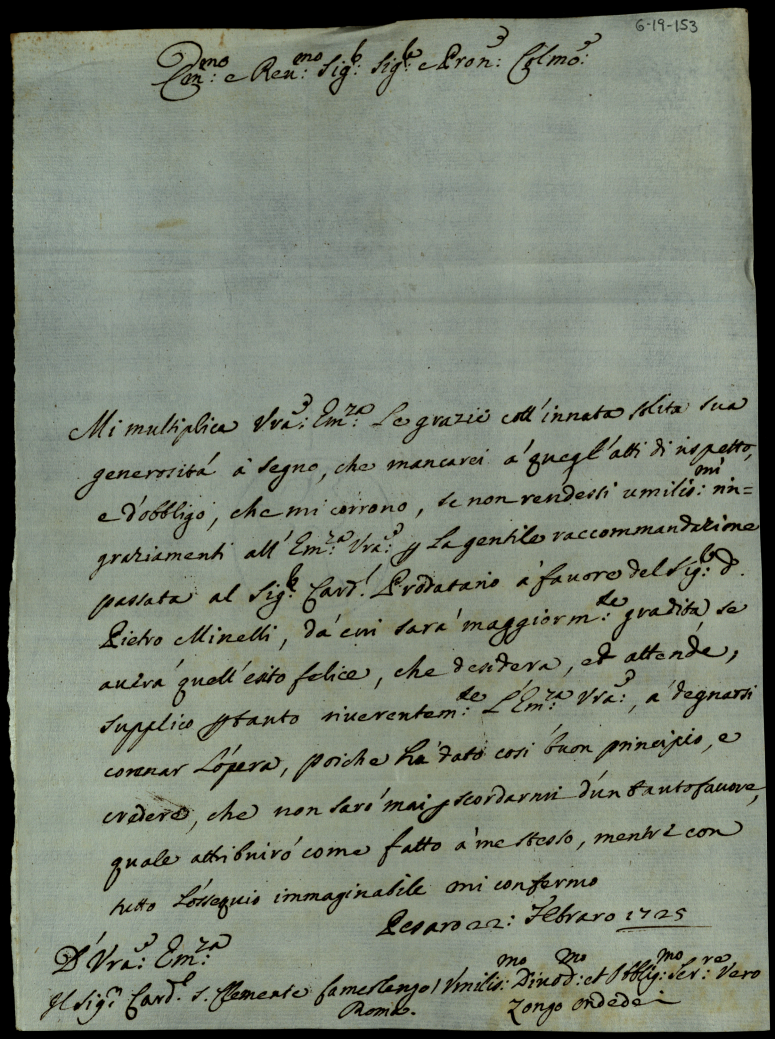 6-19-153
Em:mo e Reu:mo Sig:r Sig:r e Pron:e Col:mo
Mi multiplica Vra: Em:za Le grazie coll'innata solita sua
generositá á segno, che mancarei á quegl'atti di rispetto,
e d'obbligo, che mi corrono, se non rendessi umilis:mi rin=
graziamenti all'Em:za Vra: p La gentile raccommandazione
passata al Sig:r Card:l Prodatario á favore del Sig:r D.
Pietro Minelli, dá cui sará maggiorm:te gradita se
aurá quell'esito felice, che desidera, et attende,
supplico ptanto riverentem:te L'Em:za Vra:, á degnarsi
coronar L'opera, poiche há dato cosi buon principio, e
credere, che non saró mai p scordarmi d'un tanto favore,
quale attribuiró come fatto á me stesso, mentre con
tutto L'ossequio immaginabile mi confermo
Pesaro 22: Febraro 1725
D' Vra: Em:za
Il Sig:r Card:l S. Clemente Camerlengo / Umilis:mo Diuod:mo et Obblig:mo Ser:re Vero
Roma.
Zongo Ondedei